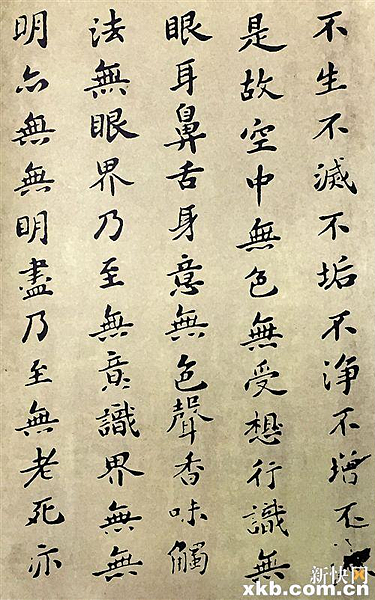 不生不滅不垢不淨不增不
是故空中無色無受想行識無
眼耳鼻舌身意無色聲香味觸
法無眼界乃至無意識界無無
明亦無無明盡乃至無老死亦
新快网
xkb.com.cn